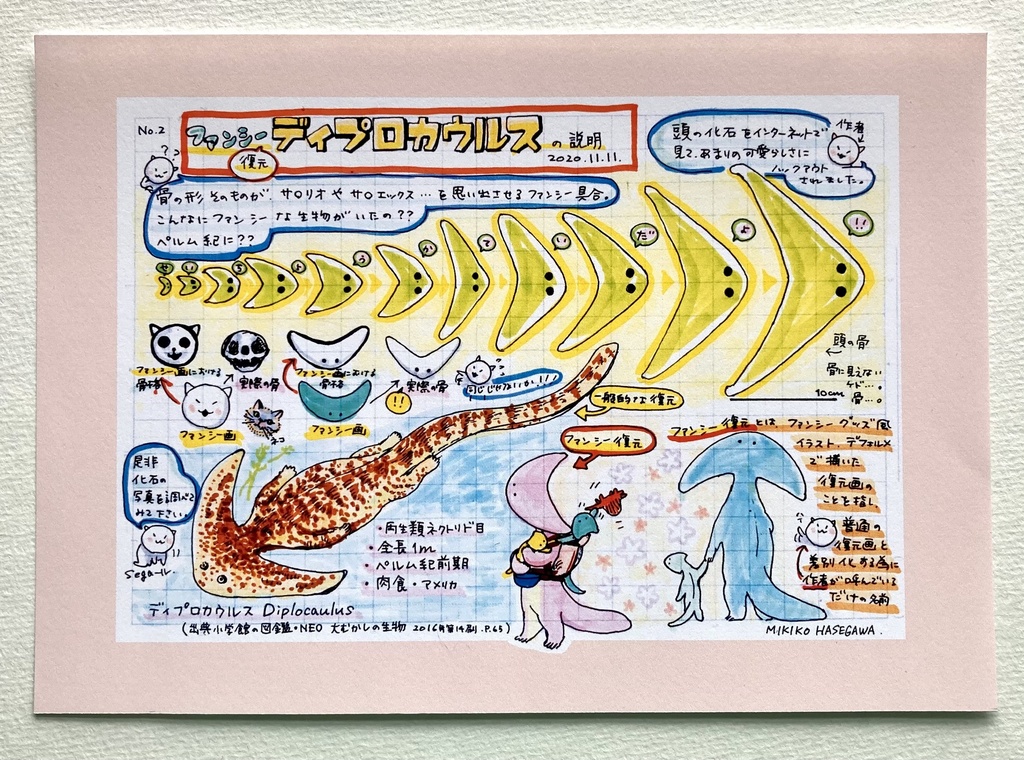 No.2
ファンシー ディプロカウルス の説明
復元
2020.11.11.
頭の化石をインターネットで
見て、あまりの可愛らしさに
ノックアウト
されました。
作者
骨の形そのものが、サ○リオやサ○エックス…を思い出させるファンシー具合。
こんなにファンシーな生物がいたの??
ペルム紀に??
せ
い
ち
ょ
う
か
て
い
だ
よ
!!
頭の骨
骨に見えない
ケド…。
骨…。
10cm
ファンシー画における
骨格
実際の骨
ファンシー画における
骨格
実際の骨
同じじゃないか!!!
!!
ファンシー画
ネコ
ファンシー画
一般的な復元
ファンシー復元
ファンシー復元とは、ファンシーグッズ風
イラスト、デフォルメ
で描いた
復元画の
ことを指し、
普通の
復元画と
差別化する為に
作者が呼んでいる
だけの名前
是非
化石の
写真を調べて
みて下さい。
Segaール.
・両生類ネクトリド目
・全長1m
・ペルム紀前期
・肉食・アメリカ
ディプロカウルス Diplocaulus
(出典小学館の図鑑・NEO 大むかしの生物 2016年第14刷.P.65)
MIKIKO HASEGAWA.